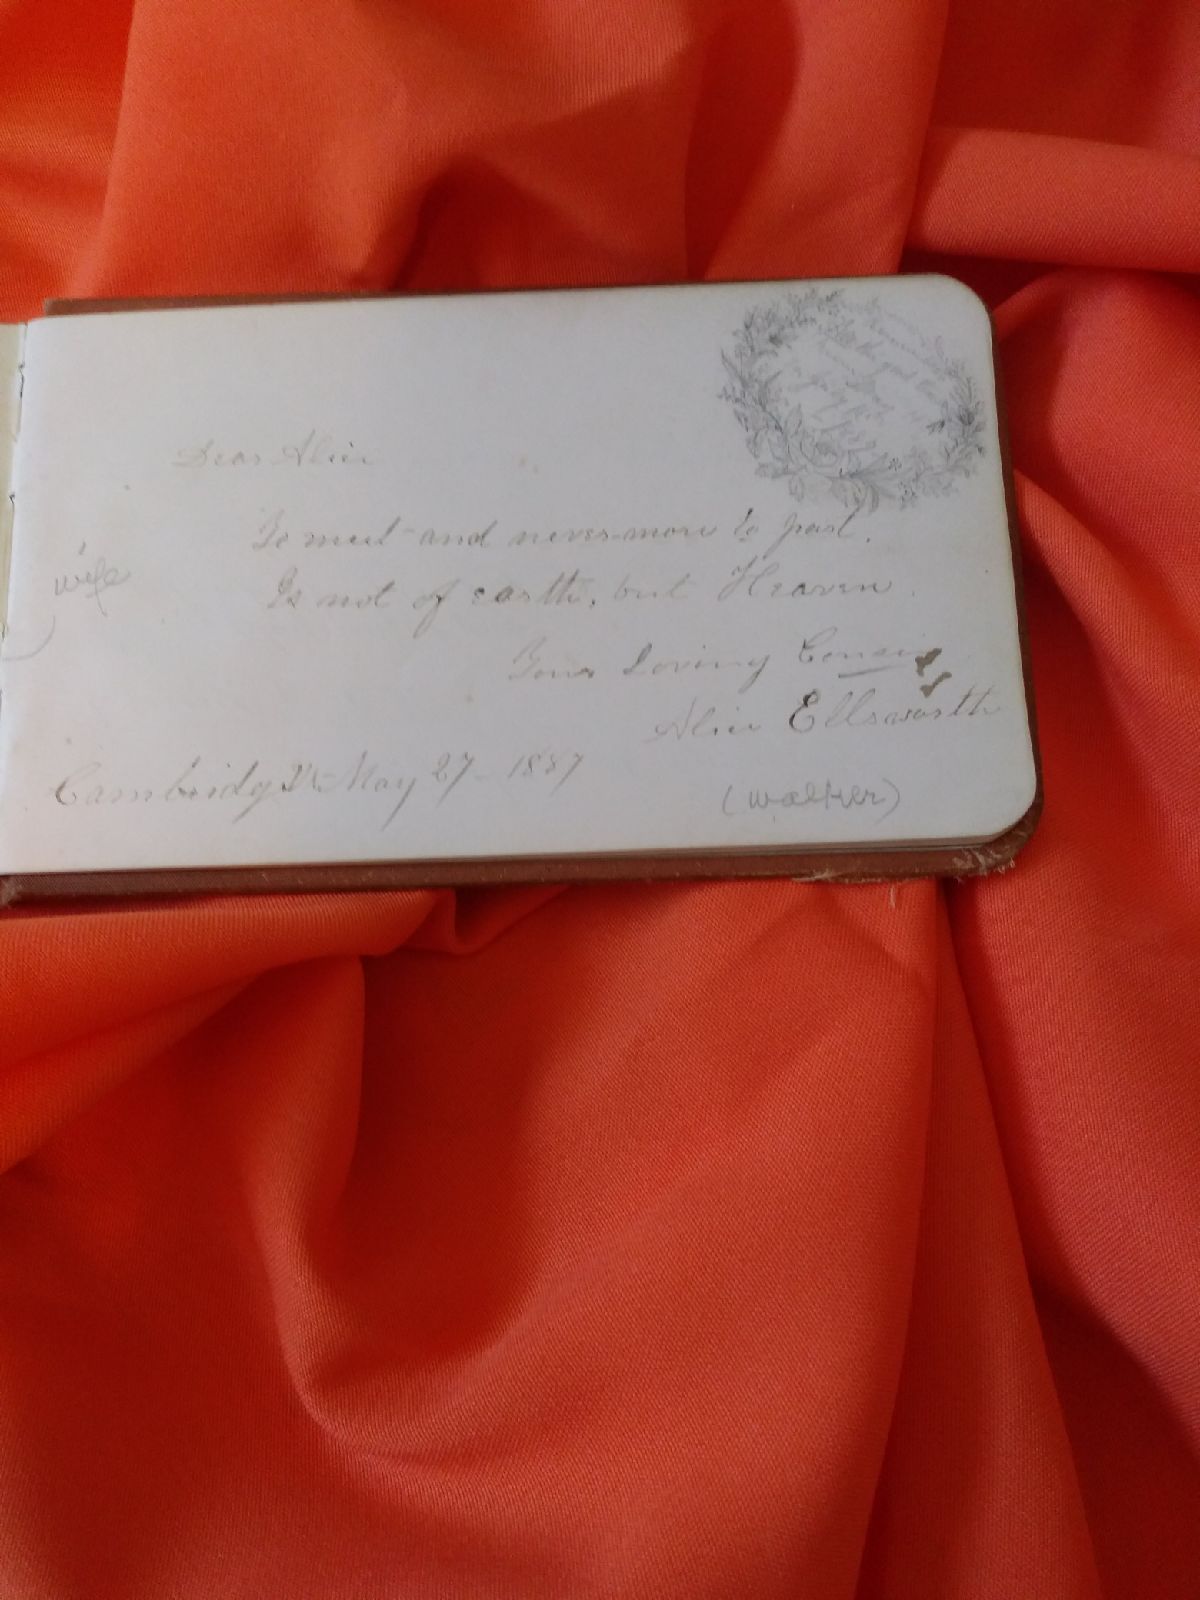 Dear Alice
To meet and never-more to part.
wife
Is not of earth, but Heaven.
Your Loving Cousin
Alice Ellsworth
Cambridge Vt May 27 - 1887
(Walker)